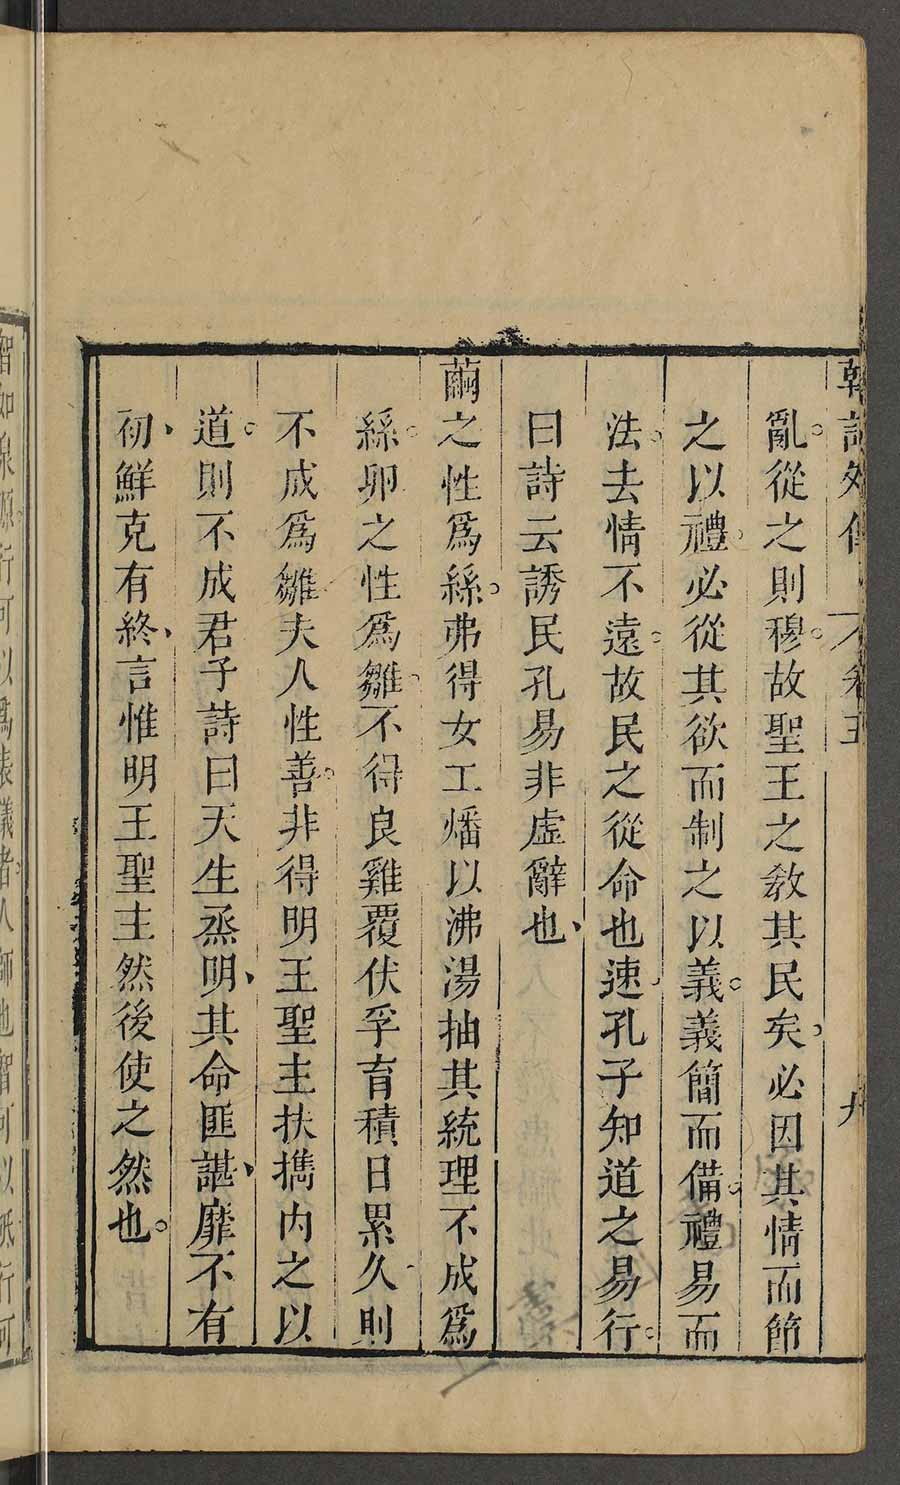 韓詩外傳 卷五 九
亂。從之則穆。故聖王之敎其民矣。必因其情而節
之以禮。必從其欲而制之以義。義簡而備。禮易而
法。去情不遠。故民之從命也速。孔子知道之易行。
曰詩云誘民孔易非虛辭也、
繭之性爲絲。弗得女工燔以沸湯抽其統理不成爲
絲。卵之性爲雛。不得良雞覆伏孚育積日累久則
不成爲雛夫人性善。非得明王聖主扶擕內之以
道。則不成君子詩曰天生烝明、其命匪諶、靡不有
初、鮮克有終、言惟明王聖主然後使之然也。
智如泉源。行可以爲表儀者。人師也智可以砥行可